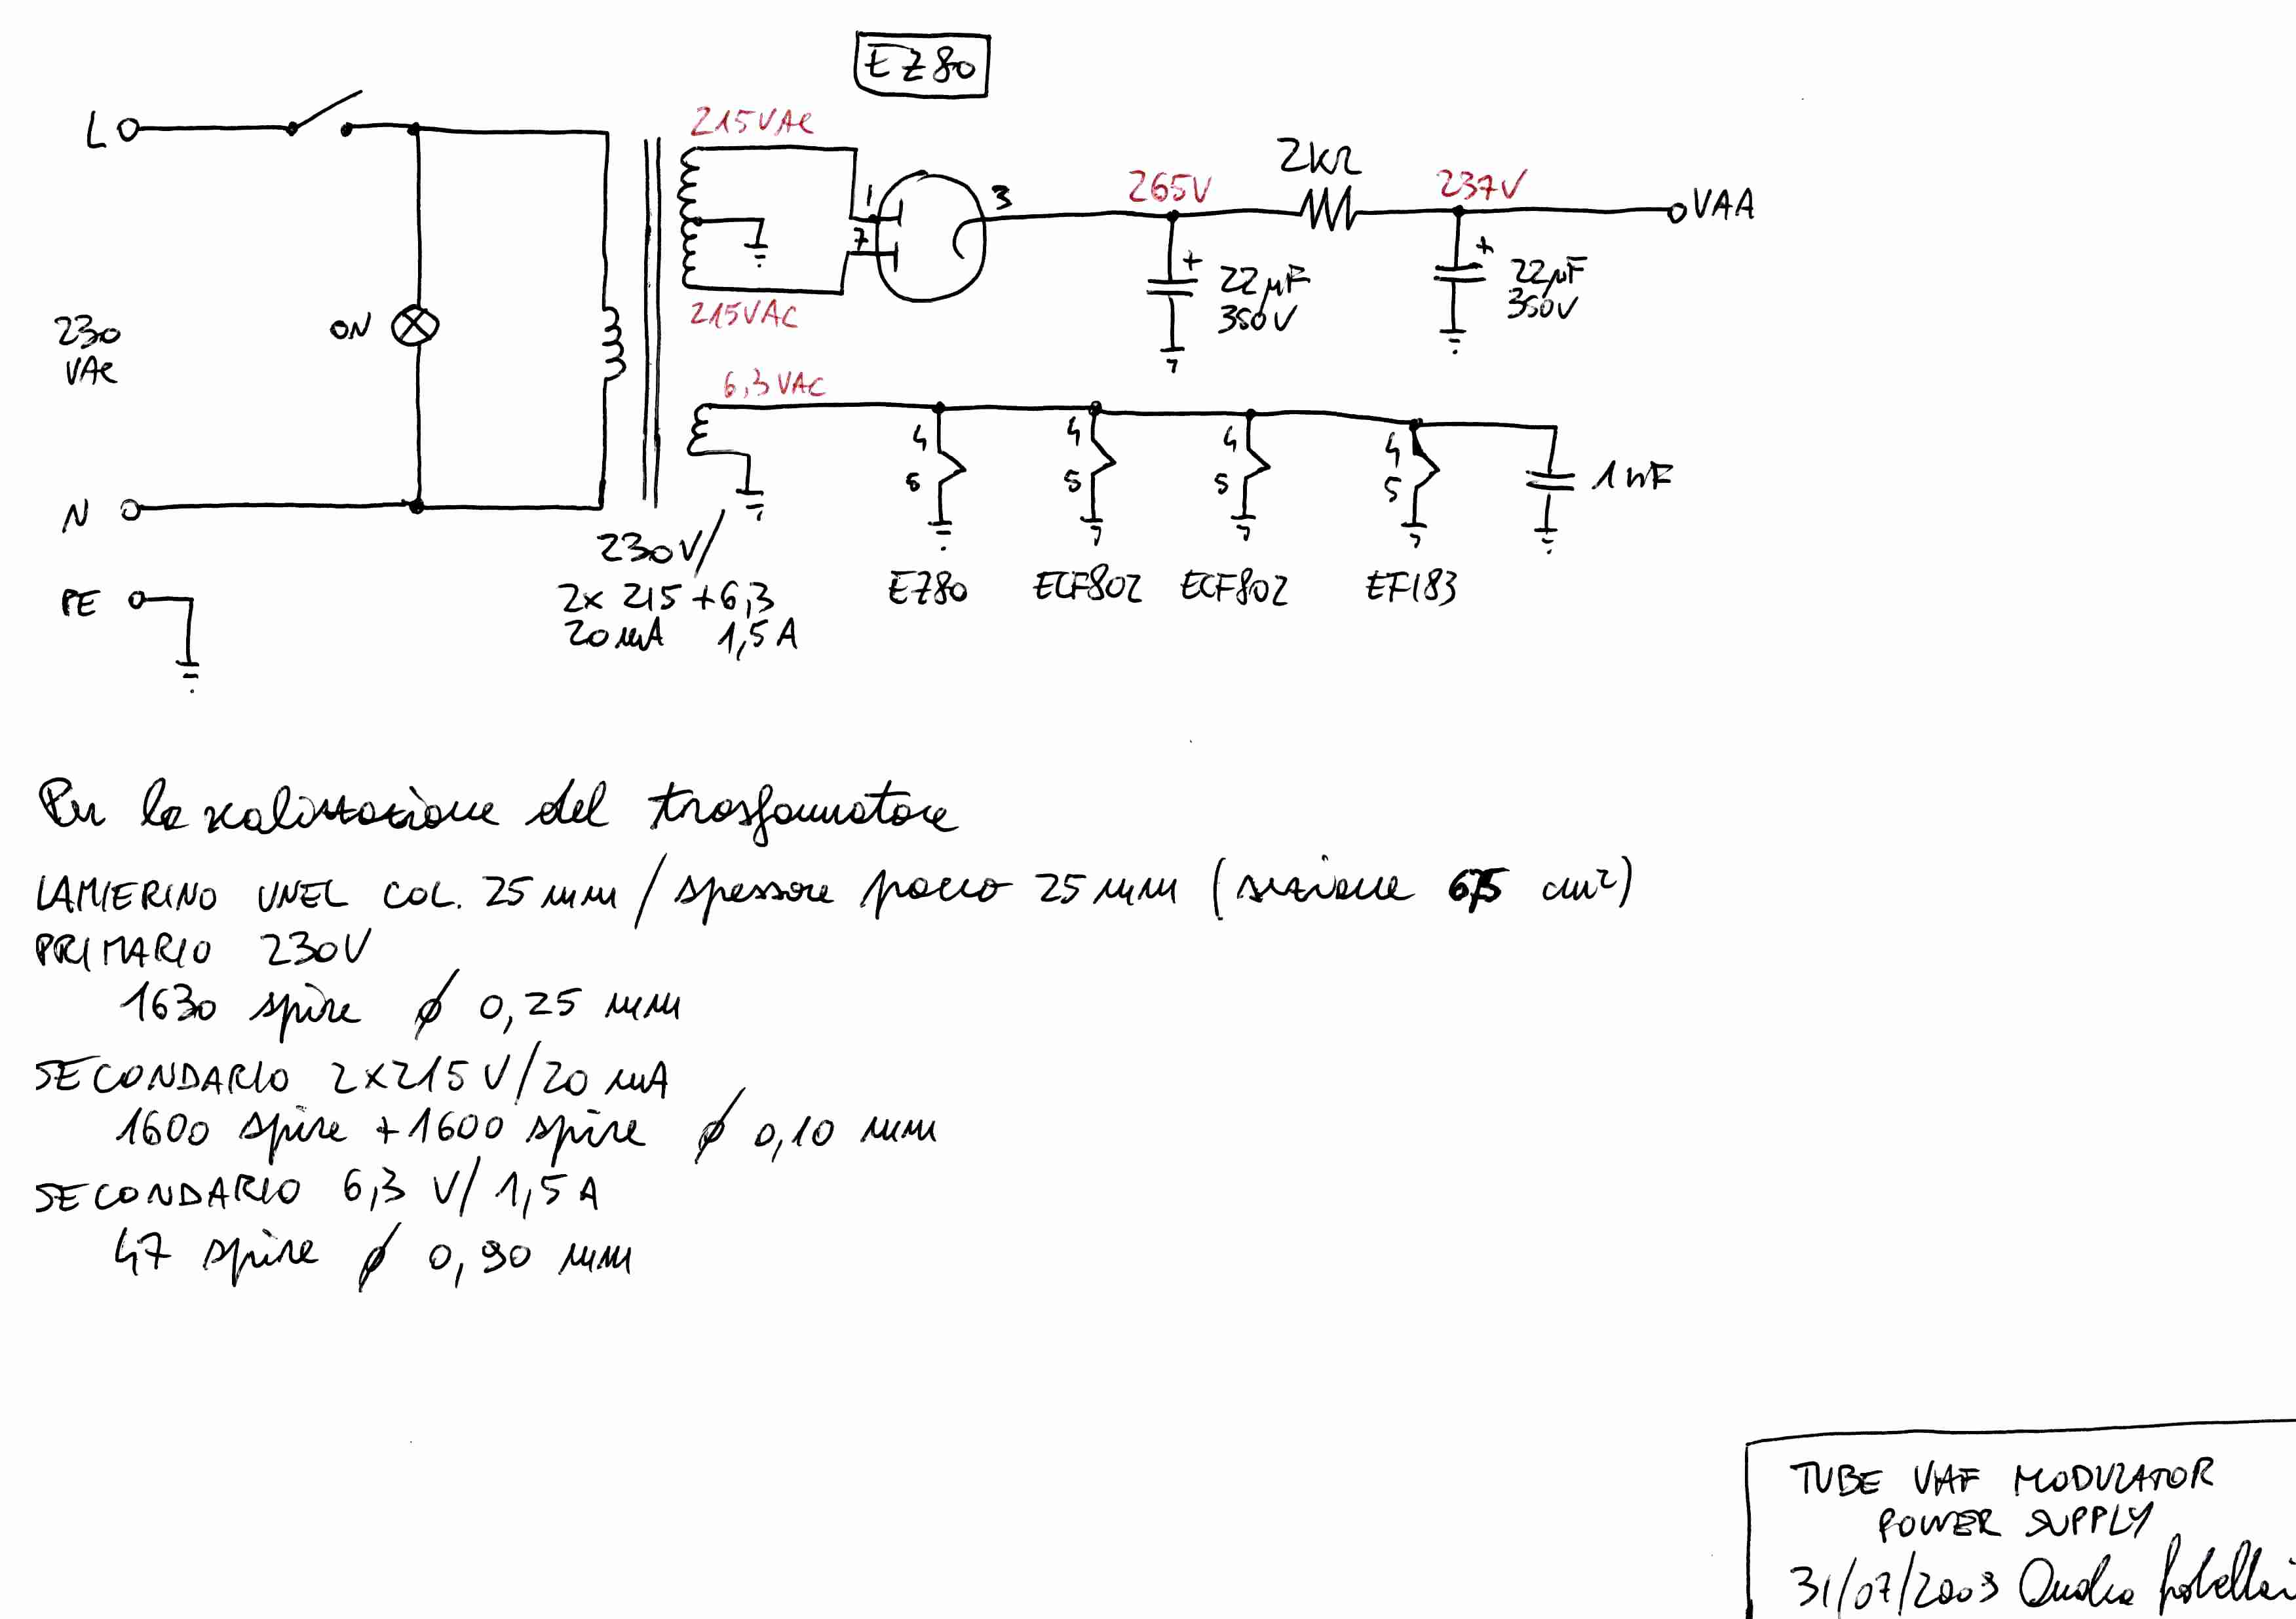 EZ80
215VAC
L
1
3
265V
2KΩ
237V
VAA
7
+
22µF
350V
+
22µF
350V
215VAC
230
VAC
ON
6,3VAC
4
5
4
5
4
5
4
5
1nF
N
230V/
2x 215 +6,3
20mA 1,5A
EZ80
ECF802
ECF802
EF183
PE
Per la realizzazione del trasformatore
LAMIERINO UNEL COL. 25mm / spessore pacco 25mm (sezione 6,75 cm²)
PRIMARIO 230V
1630 spire ϕ 0,25 mm
SECONDARIO 2x215V/20mA
1600 spire +1600 spire ϕ 0,10 mm
SECONDARIO 6,3 V/1,5A
47 spire ϕ 0,90 mm
TUBE VHF MODULATOR
POWER SUPPLY
31/07/2003